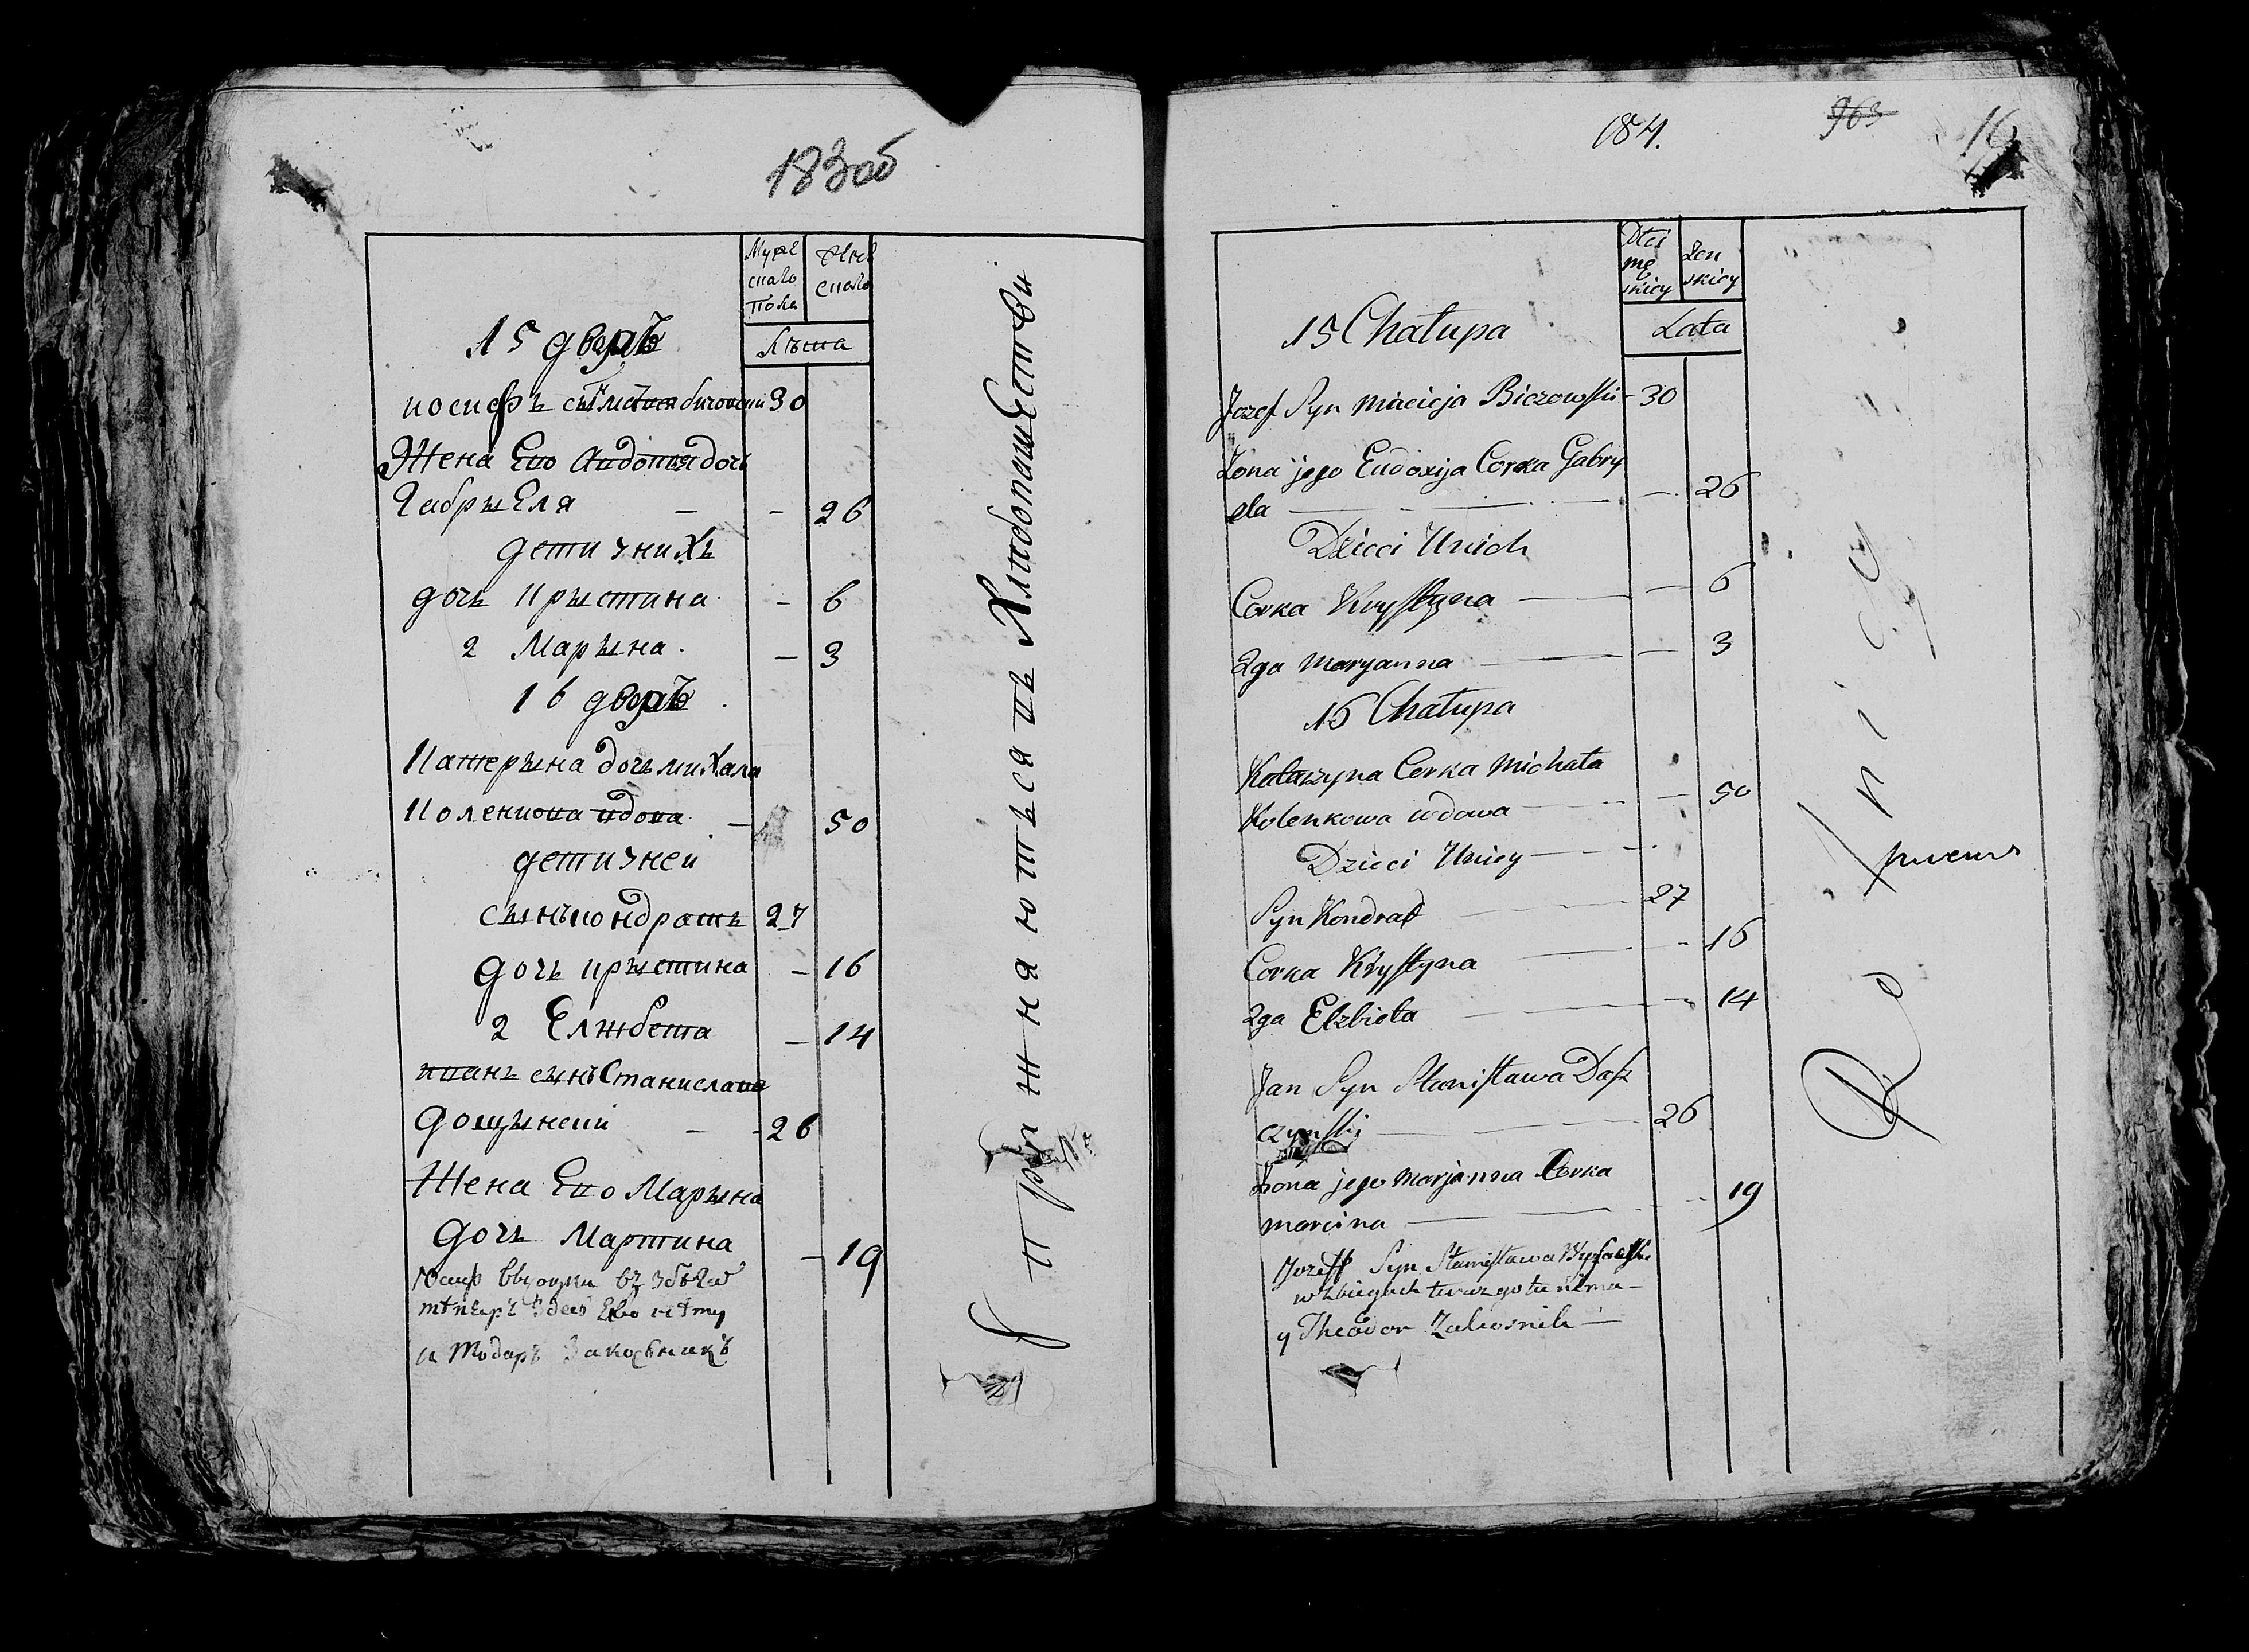 183об
Мужескаго пола
Женскаго
Лѣта
15 дворъ
иосифъ сынъ бичовский 30
Жена Ево Авдотья дочь
Габрыеля — - 26
дети у них
дочь крыстина - 6
2 Марына - 3
16 дворъ
Катерына дочь михала
Коленкова вдова - 50
дети у ней
сынъ кондратъ 27
дочь крыстина - 16
2 Елжбета - 14
иванъ сынъ Станислава
дощынский — - 26
Жена Ево Марына
дочь Мартина - 19
въ збегах
тѣперъ здес Ево нѣту
и Тодаръ Закосникъ
упражняются Хлебопашеством
184.
963
16
Płci męskiey
Żenskiey
Lata
15 Chałupa
Jozef Syn Macieja Biczowski - 30
Zona jego Eudoxija Corka Gabry
ela — 26
Dzieci Unich
Corka Krystyna — 6
2ga Maryanna — 3
16 Chałupa
Katarzyna Corka Michała
Kolenkowa wdowa — 50
Dzieci Uniey —
Syn Kondrat — 27
Corka Krystyna — 16
2ga Elzbieta — 14
Jan Syn Stanisława Dasz
czynski — 26
Zona jego Marjanna Corka
Marcina — 19
Jozeff Syn Stanisława
w zbiegach teraz go tu nima —
y Theodor Zakosnik —
Rolnicy